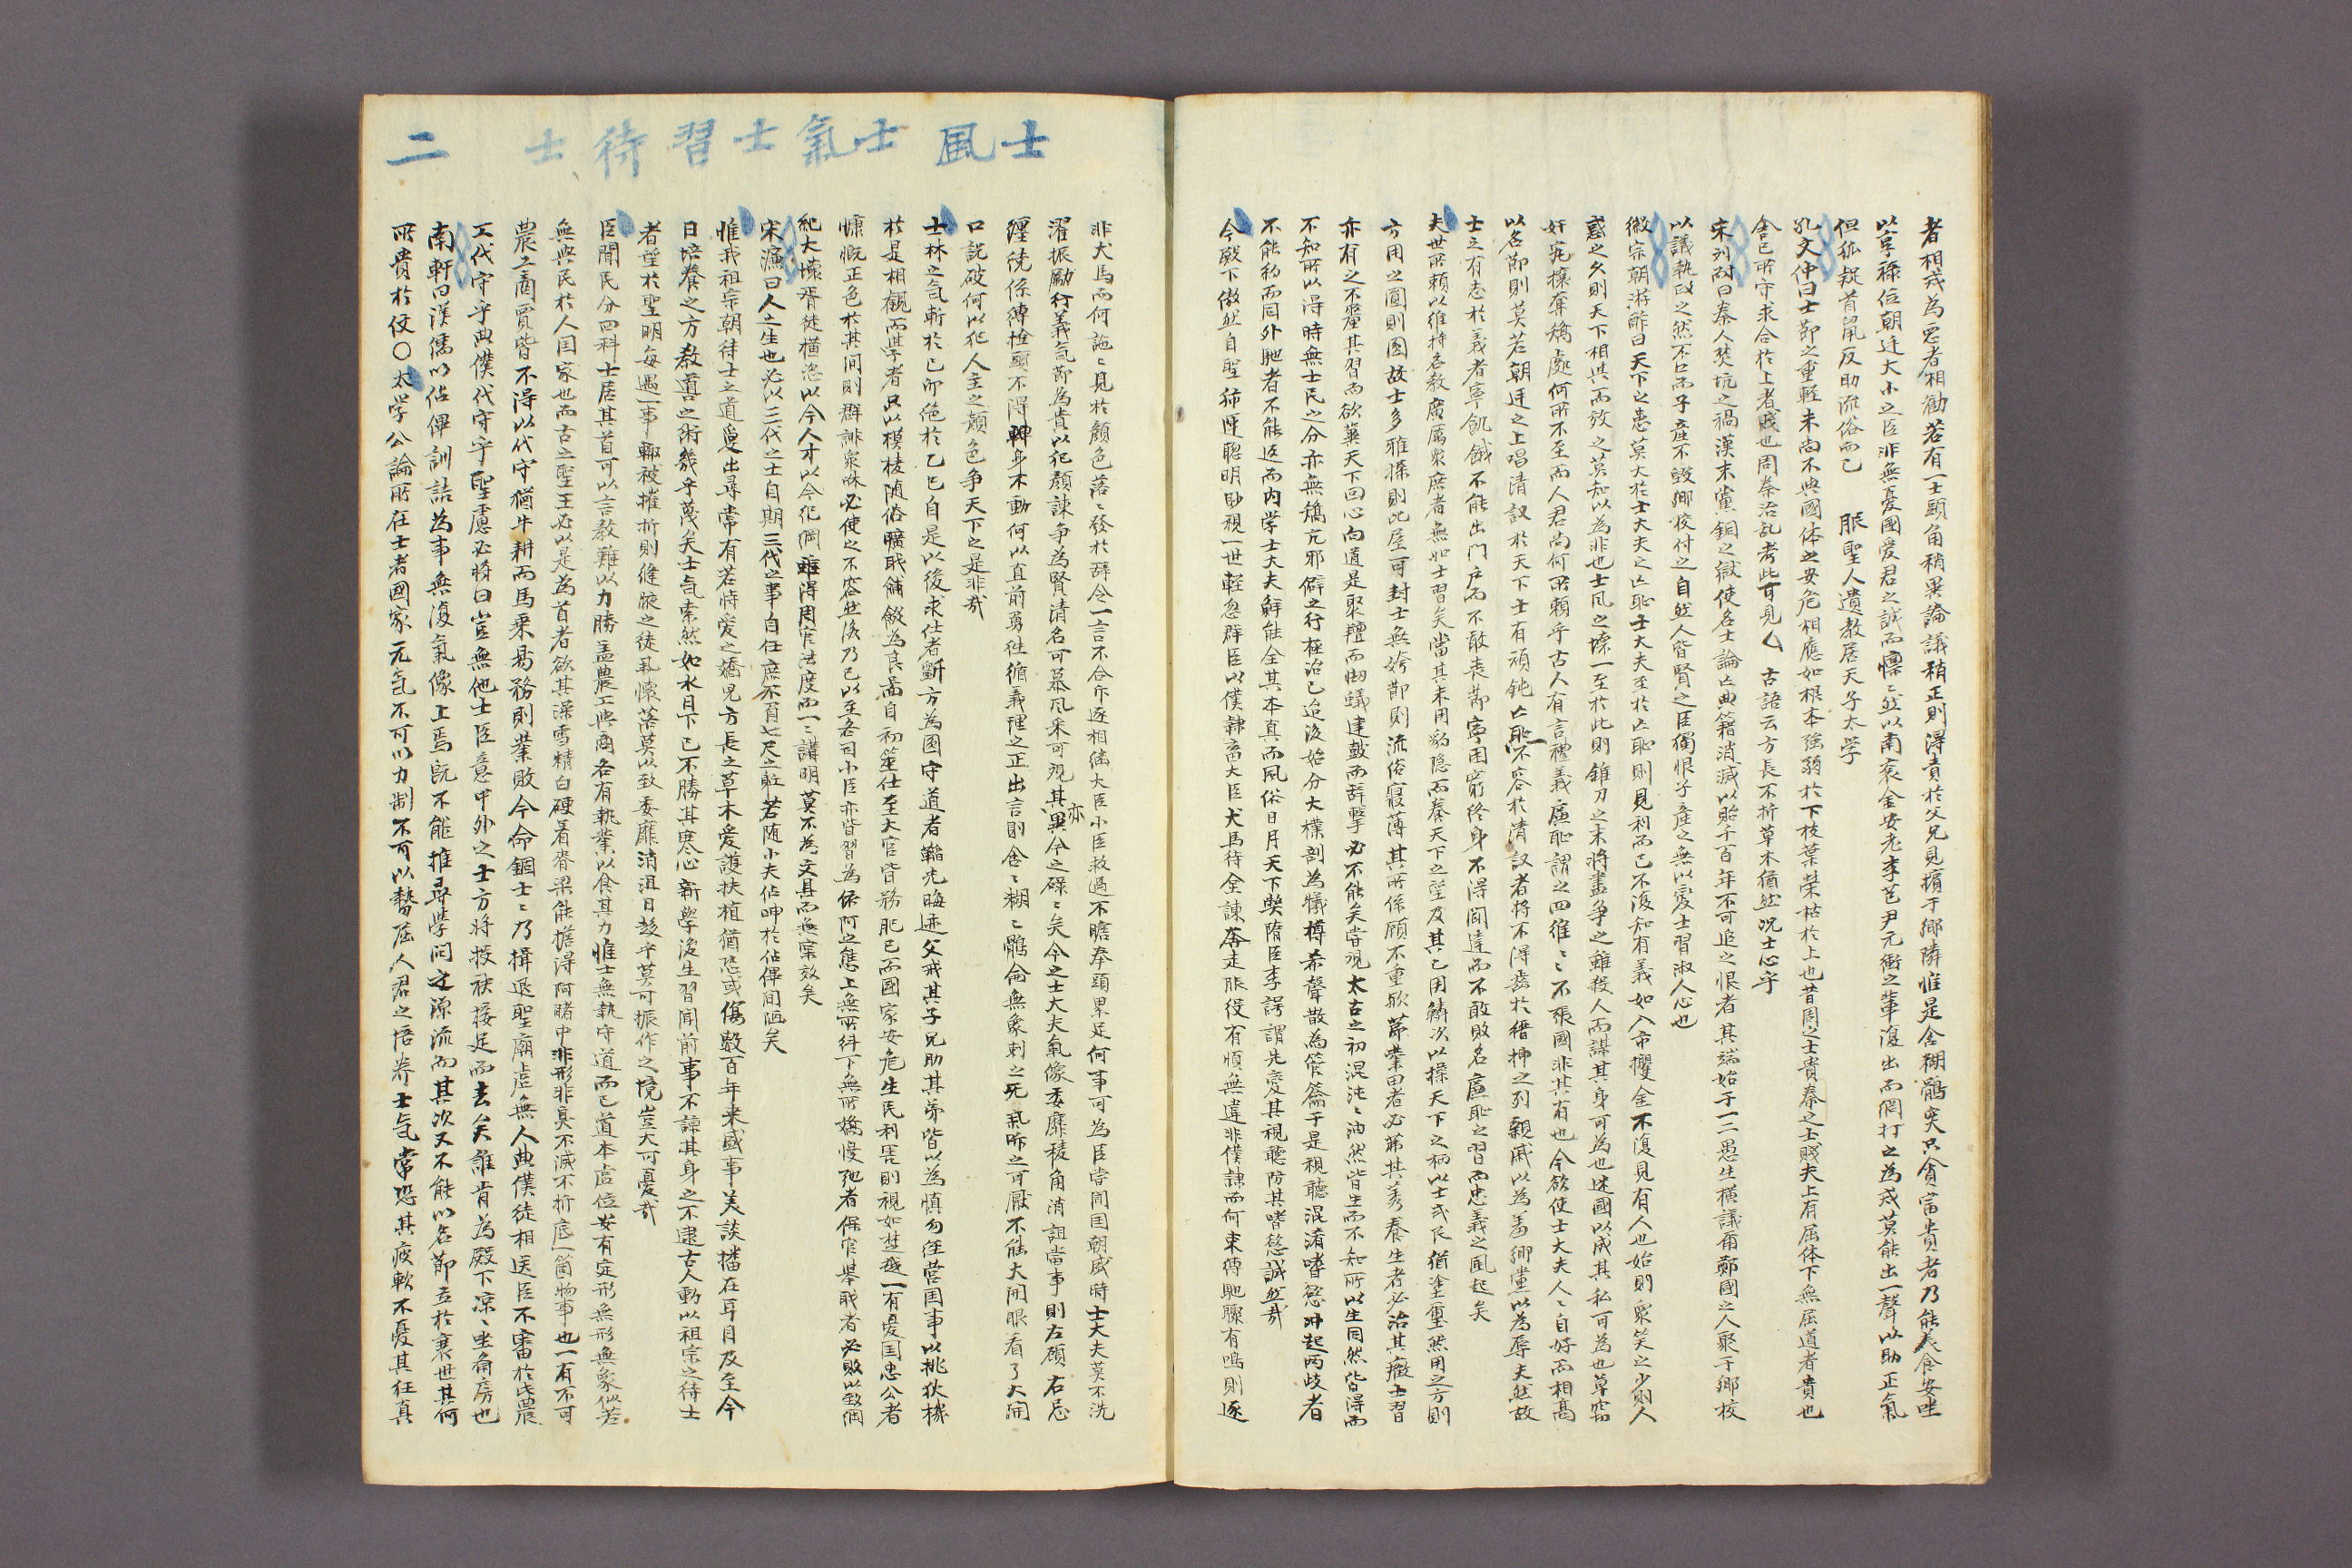 者相戒為惡者相勸若有一士頭角稍異論議稍正則得責於父兄見擯于鄕隣惟是含糊鶻突只貪富貴者乃能美食安坐
以享祿位朝廷大小之臣非無憂國愛君之誠而懍〻然以南袞金安老李芑尹元衡之輩復出而網打之為戒莫能出一聲以助正氣
但狐疑首鼠反助流俗而已 服聖人遺敎居天子太學
孔文仲曰士節之重輕未尙不與國体之安危相應如根本强弱於下枝葉榮枯於上也昔周之士貴秦之士賤夫上有屈体下無屈道者貴也
舍己所守求合於上者賤也周秦治乱考此可見 古語云方長不折草木猶然况士心乎
宋 曰秦人焚坑之禍漢末黨錮之獄使名士論亡典籍消滅以貽千百年不可追之恨者其端始于一二愚生橫議爾鄭國之人聚于鄕校
以議執政之然不已而子產不毁鄕校付之自然人皆賢之臣獨恨子產之無以变士習淑人心也
徽宗朝游酢曰天下之患莫大於士大夫之亡恥士大夫至於亡恥則見利而已不復知有義如入市攫金不復見有人也始則衆笑之少則人
惑之久則天下相與而效之莫知以為非也士风之壞一至於此則錐刀之末將盡爭之雖殺人而謀其身可為也迷國以成其私可為也草竊
奸宄攘奪矯虔何所不至而人君尙何所賴乎古人有言禮義廉恥謂之四維〻〻不張國非其有也今欲使士大夫人〻自好而相高
以名節則莫若朝廷之上唱淸議於天下士有頑鈍亡恥不容於淸議者將不得齒於縉紳之列親戚以為羞鄕黨以為辱夫然故
士之有志於義者寧飢餓不能出門戶而不敢喪節寧困窮終身不得聞達而不敢敗名廉恥之習而忠義之風起矣
夫世所賴以維持名教廣厲衆庶者無如士習矣當其未用豹隱而養天下之望及其已用鱗次以操天下之柄以士式民猶塗璽然用之方則
方用之圓則圓故士多雅操則比屋可封士無姱節則流俗寢薄其所係顧不重歟 業田者必 其莠養生者必治其癥士習
亦有之不釐其習而欲冀天下回心向道是聚羶而 蟻建鼓而辟擊必不能矣嘗觀太古之初混沌〻油然皆生而不知所以生同然皆得而
不知所以得時無士民之分亦無矯亢邪僻之行極治已迨後始分大樸剖為犧樽希聲散為管籥于是視聽混淆嗜慾冲起兩歧者
不能約而同外馳者不能返而內学士大夫鮮能全其本真而風俗日月天下 隋臣李諤謂先变其視聽防其嗜慾誠然哉
今殿下傲然自聖 聰明眇視一世輕忽群臣以僕隷畜大臣犬馬待全諫奔走服役有順無違非僕隷而何束縛馳驟有鳴則逐
士風 士氣 士習 待士 二
非犬馬而何訑〻見於顏色落〻發於辭令一言不合斥逐相継大臣小臣救過不瞻奉頭累足何事可為臣嘗聞国朝盛時士大夫莫不洗
濯振勵行義气節為貴以犯顔諫爭為賢淸名可慕风采可观其亦異今之碌〻矣今之士大夫氣像委靡稜角消詛當事則左顧右忌
纏繞係縛捻頭不得轉身不動何以直前勇往循義理之正出言則含〻糊〻鶻侖無象刺之死 昕之可厭不能大開眼看了大開
口說破何以犯人主之顔色争天下之是非哉
士林之气斬於己卯絶於乙巳自是以後求仕者斲方為圓守道者韜光晦迹父戒其子兄助其弟皆以為愼勿往营国事以挑狄機
於是相觀而学者只以模棱随俗曠職餔餟為良啚自初筮仕至大官皆務肥己而國家安危生民利害則視如楚越一有憂国忠公者
慷慨正色於其间則群誹衆咻必使之不容然後乃已以至各司小臣亦皆習為依阿之態上無所糾下無所撟慢弛者保官舉職者必敗以致綱
紀大壞胥徒橫恣以今人才以今紀綱雖得周官法度而一〻講明莫不為文具而無案效矣
宋濂曰人之生也必以三代之士自期三代之事自任庶不負七尺之軀若随小夫佔呻於佔俾间陋矣
惟我祖宗朝待士之道逈出尋常有若恃愛之嬌児方長之草木爱護扶植猶恐或傷數百年来盛事美談播在耳目及至今
日培養之方敎道之術幾乎蔑矣士气索然如水日下已不勝其寒心新學後生習聞前事不諒其身之不逮古人動以祖宗之待士
者望於聖明每遇一事輒被摧折則縫腋之徒 懷落莫以致委靡消沮日 乎莫可振作之境豈大可憂哉
臣聞民分四科士居其首可以言敎難以力勝盖農工與商各有執業以食其力惟士無執守道而已道本虛位安有定形無形無象似若
無與民於人国家也而古之聖王必以是為首者欲其澡雪精白硬着脊梁能撐得阿睹中非形非臭不滅不折底一箇物事也一有不可
農工商賈皆不得以代守猶牛耕而馬乗易務則業敗今命錮士〻乃揖退聖廟虛無人典僕徒相送臣不審於此農
工代守乎典僕代守乎聖慮必將曰豈無他士臣意中外之士方將投袂接足而去矣誰肯為殿下凉〻坐斋房也
南軒曰漢儒以佔俾訓詁為事無復氣像上焉旣不能推尋学问之源流而其次又不能以名節立於衰世其何
所貴於仗〇太学公論所在士者國家元气不可以力制不可以勢屈人君之培养士气常恐其疲軟不憂其狂真